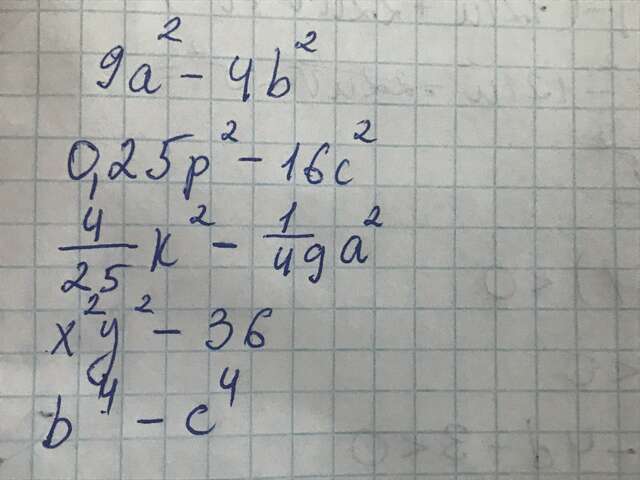 9a² - 4b²
0,25p² - 16c²
4/25 k² - 1/49 a²
x²y² - 36
b⁴ - c⁴